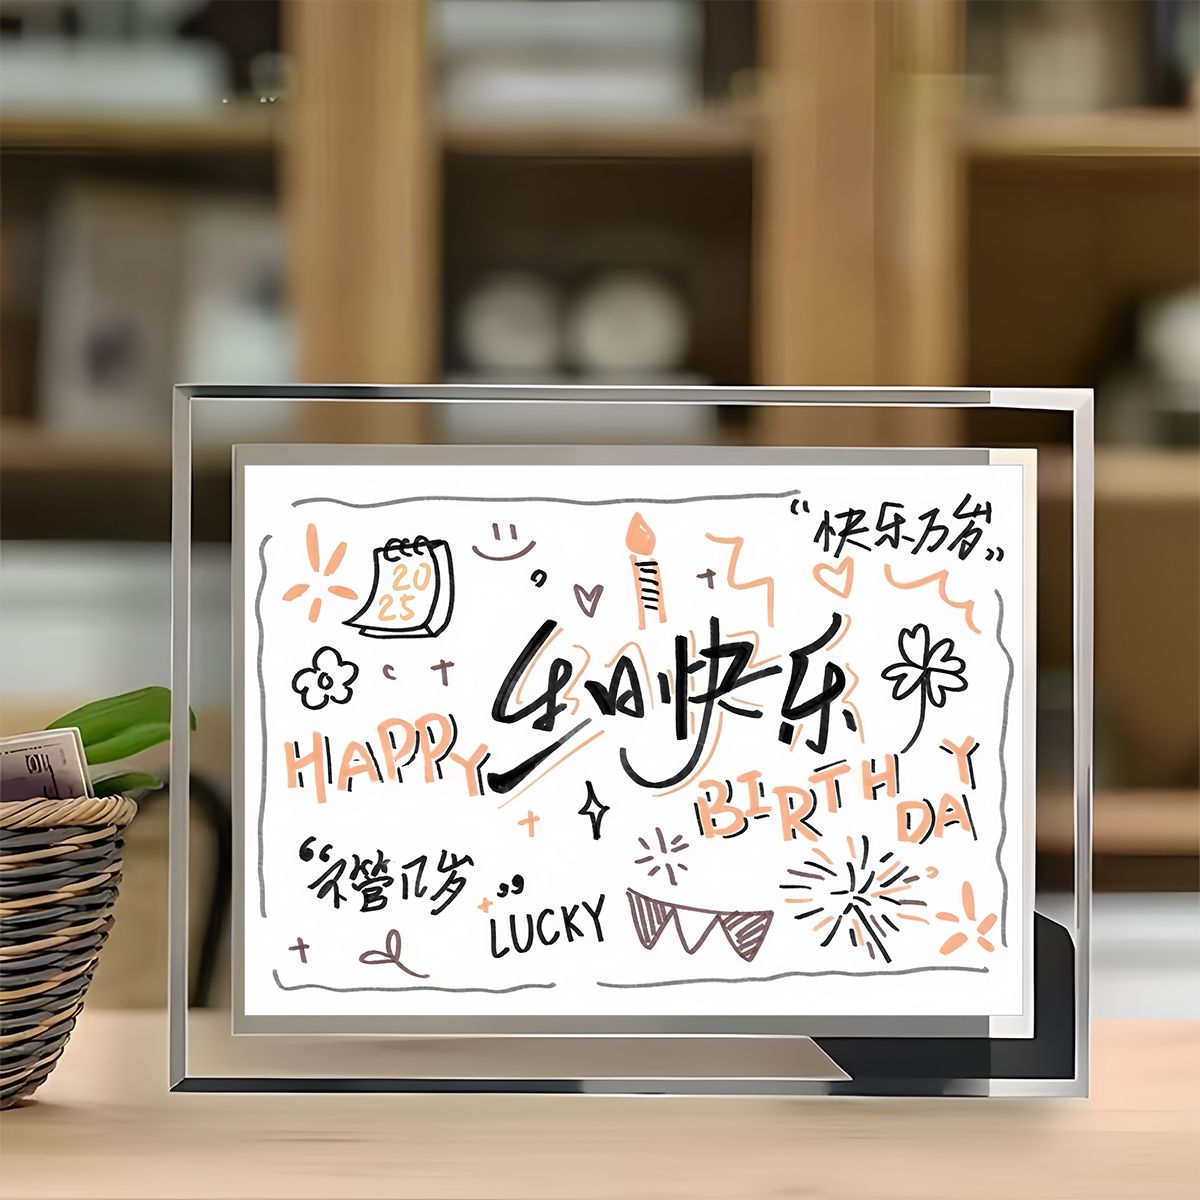 “快乐万岁”
20
25
生日快乐
HAPPY
BIRTHDAY
“不管几岁”
LUCKY